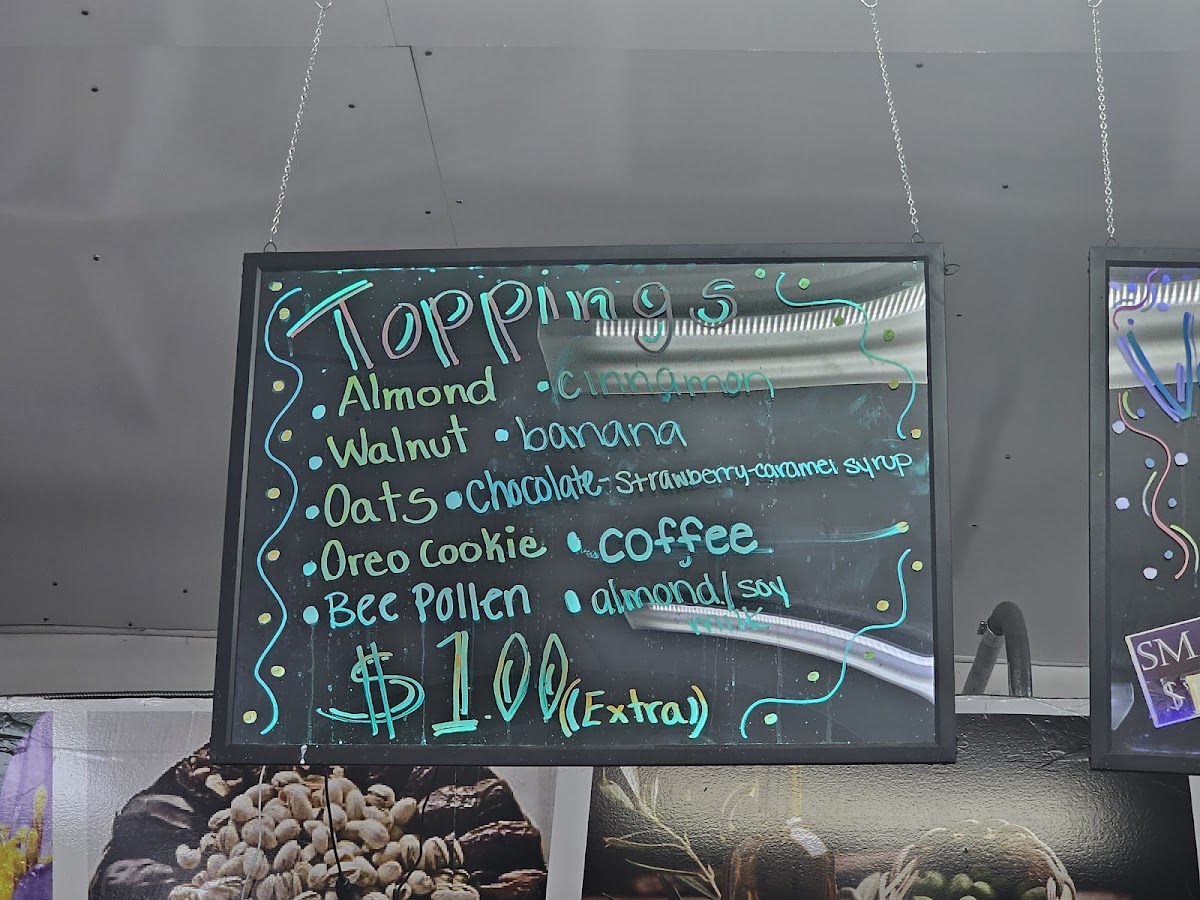 Toppings
• Almond • cinnamon
• Walnut • banana
• Oats • Chocolate-strawberry-caramel syrup
• Oreo Cookie • coffee
• Bee Pollen • almond/soy
milk
$1.00 (Extra)
SM
$